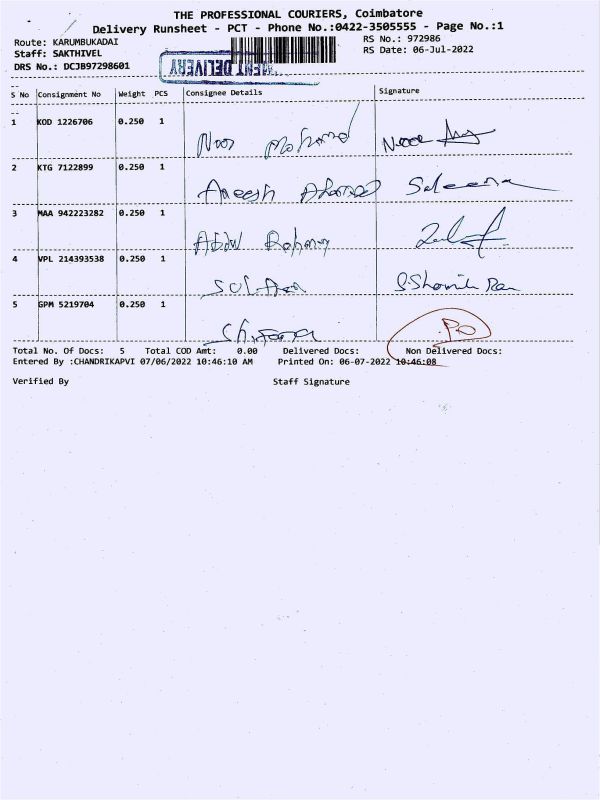 THE PROFESSIONAL COURIERS, Coimbatore
Delivery Runsheet - PCT - Phone No.:0422-3505555 - Page No.:1
Route: KARUMBUKADAI
RS No.: 972986
Staff: SAKTHIVEL
RS Date: 06-Jul-2022
DRS No.: DCJB97298601
URGENT DELIVERY
S No Consignment No Weight PCS Consignee Details Signature
1 KOD 1226706 0.250 1
Noor Mohamed
2 KTG 7122899 0.250 1
Aneesh Ahamed Saleena
3 MAA 942223282 0.250 1
Abdul Rahman
4 VPL 214393538 0.250 1
Sultan
5 GPM 5219704 0.250 1
Total No. Of Docs: 5 Total COD Amt: 0.00 Delivered Docs: Non Delivered Docs:
Entered By :CHANDRIKAPVI 07/06/2022 10:46:10 AM Printed On: 06-07-2022 10:46:08
Verified By Staff Signature